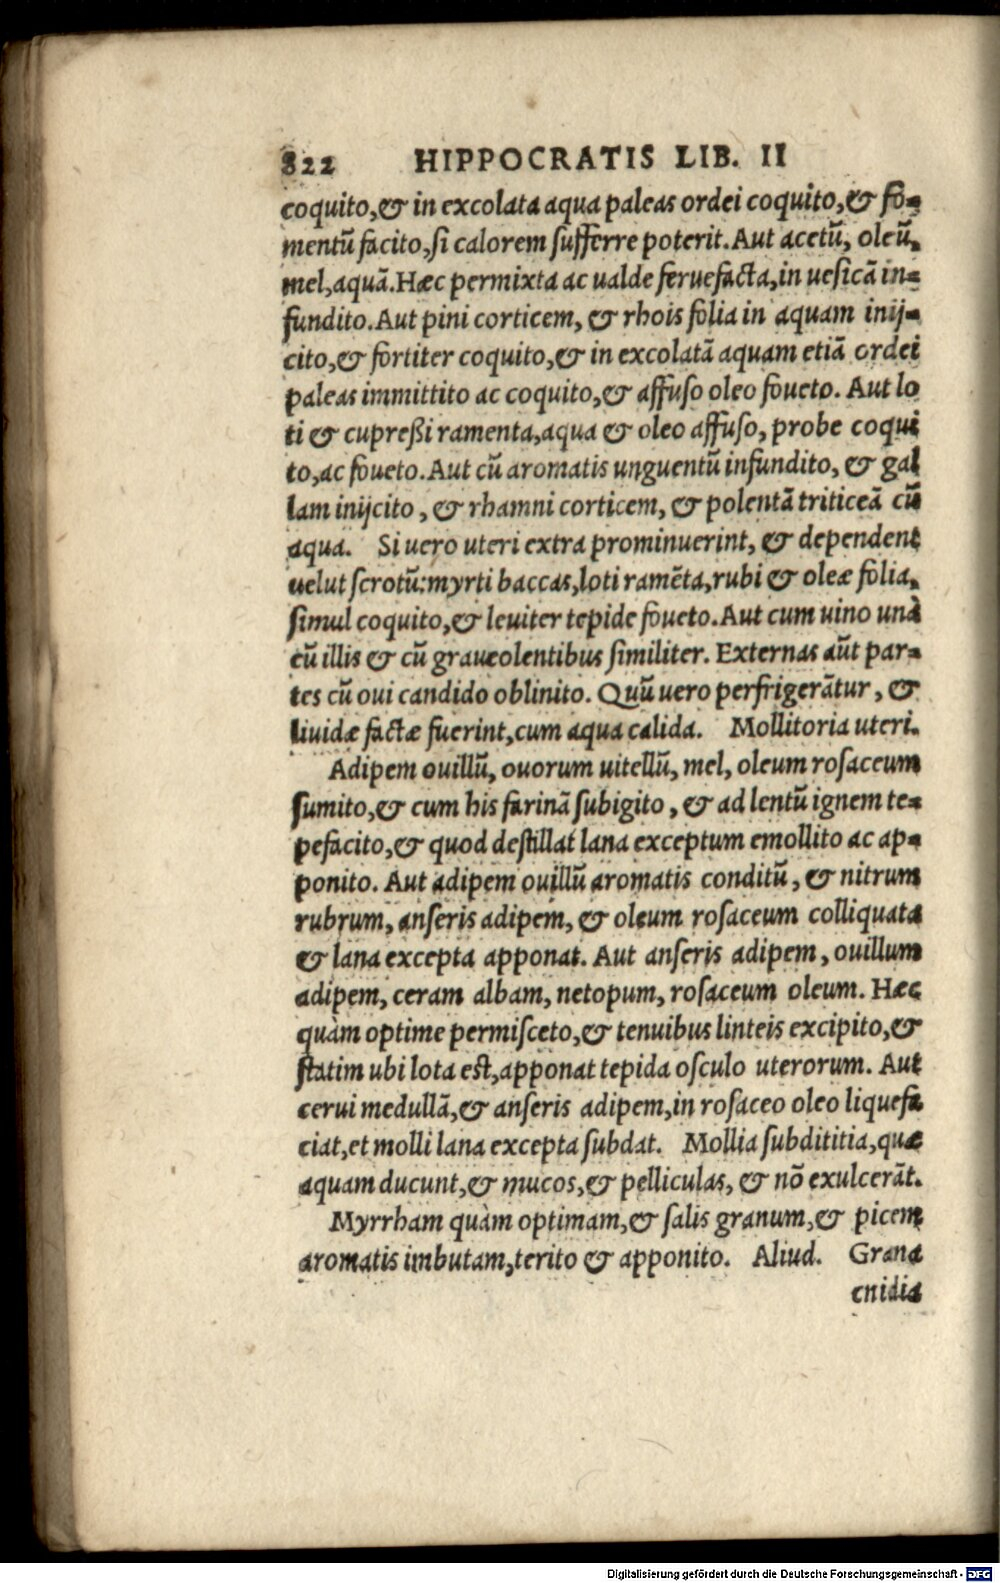 822 HIPPOCRATIS LIB. II
coquito,& in excolata aqua paleas ordei coquito,& fo-
mentũ facito,si calorem sufferre poterit.Aut acetũ, oleũ,
mel,aquã.Hæc permixta ac ualde feruefacta,in uesicã in-
fundito.Aut pini corticem, & rhois folia in aquam inij-
cito,& fortiter coquito,& in excolatã aquam etiã ordei
paleas immittito ac coquito,& affuso oleo foueto. Aut lo
ti & cupreßi ramenta,aqua & oleo affuso, probe coqui
to,ac foueto.Aut cũ aromatis unguentũ infundito, & gal
lam inijcito, & rhamni corticem, & polentã triticeã cũ
aqua. Si uero uteri extra prominuerint, & dependent
uelut scrotũ:myrti baccas,loti ramẽta,rubi & oleæ folia,
simul coquito,& leuiter tepide foueto.Aut cum uino unà
cũ illis & cũ graueolentibus similiter. Externas aũt par-
tes cũ oui candido oblinito. Quũ uero perfrigerãtur, &
liuidæ factæ fuerint,cum aqua calida. Mollitoria uteri.
Adipem ouillũ, ouorum uitellũ, mel, oleum rosaceum
sumito,& cum his farinã subigito, & ad lentũ ignem te-
pefacito,& quod destillat lana exceptum emollito ac ap-
ponito. Aut adipem ouillũ aromatis conditũ, & nitrum
rubrum, anseris adipem, & oleum rosaceum colliquata
& lana excepta apponat. Aut anseris adipem, ouillum
adipem, ceram albam, netopum, rosaceum oleum. Hæc
quàm optime permisceto,& tenuibus linteis excipito,&
statim ubi lota est,apponat tepida osculo uterorum. Aut
cerui medullã,& anseris adipem,in rosaceo oleo liquefa
ciat,et molli lana excepta subdat. Mollia subdititia,quæ
aquam ducunt,& mucos,& pelliculas, & nõ exulcerãt.
Myrrham quàm optimam,& salis granum,& picem
aromatis imbutam,terito & apponito. Aliud. Grana
cnidia
Digitalisierung gefördert durch die Deutsche Forschungsgemeinschaft - DFG